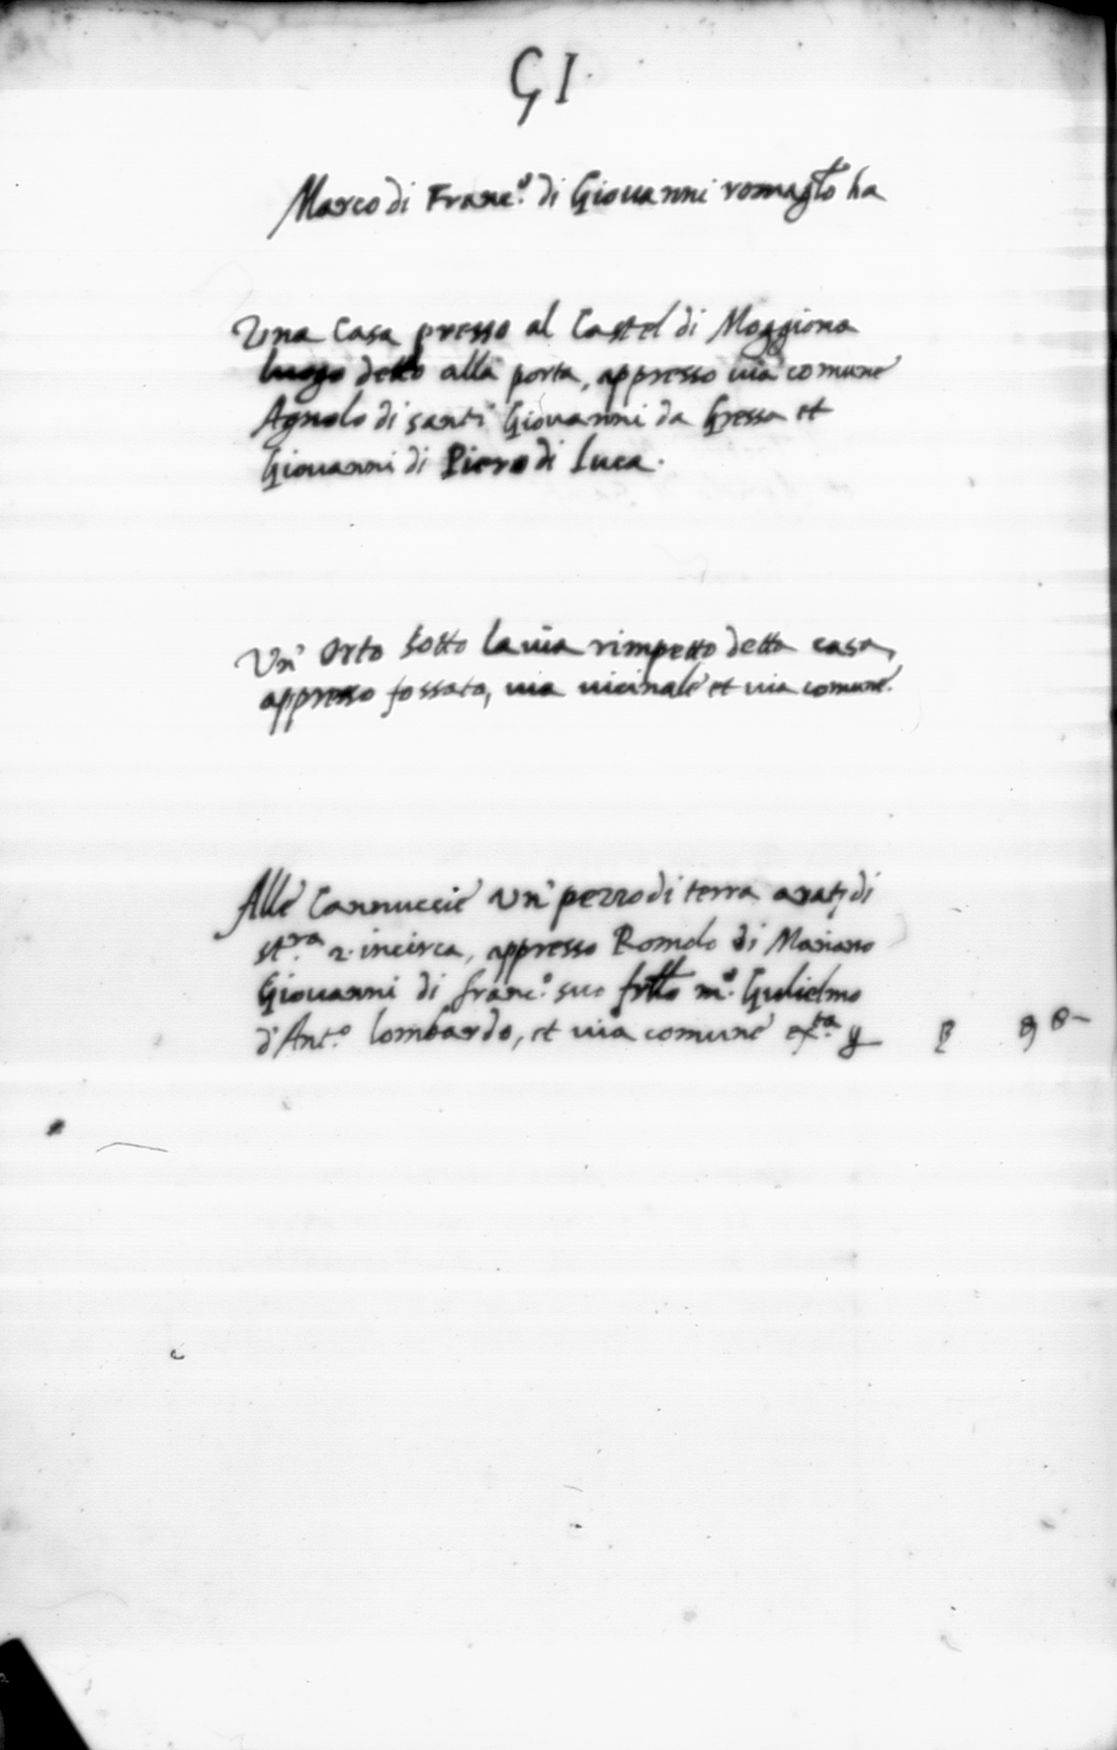 51
Marco di Franc.º di Giouanni romag.lo ha
Una Casa presso al Castel di Moggiona
luogo detto alla porta, appresso uia comune
Agnolo di santi Giouanni da Gressa et
Giouanni di Piero di Luca.
Un' Orto sotto la uia rimpetto detta casa,
appresso fossato, uia uicinale et uia comune.
Alle Cannuccie un' pezzo di terra di
st.ra 2. incirca, appresso Romolo di Mariano
Giouanni di franc.º suo frllo m.º Gulielmo
d'Ant.º lombardo, et uia comune